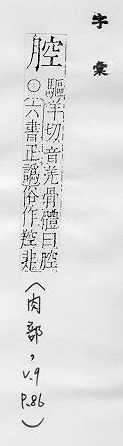 字彙
腔
驅羊切音羌骨體曰腔
○六書正譌俗作羫非
(肉部,
v.9
p.86)